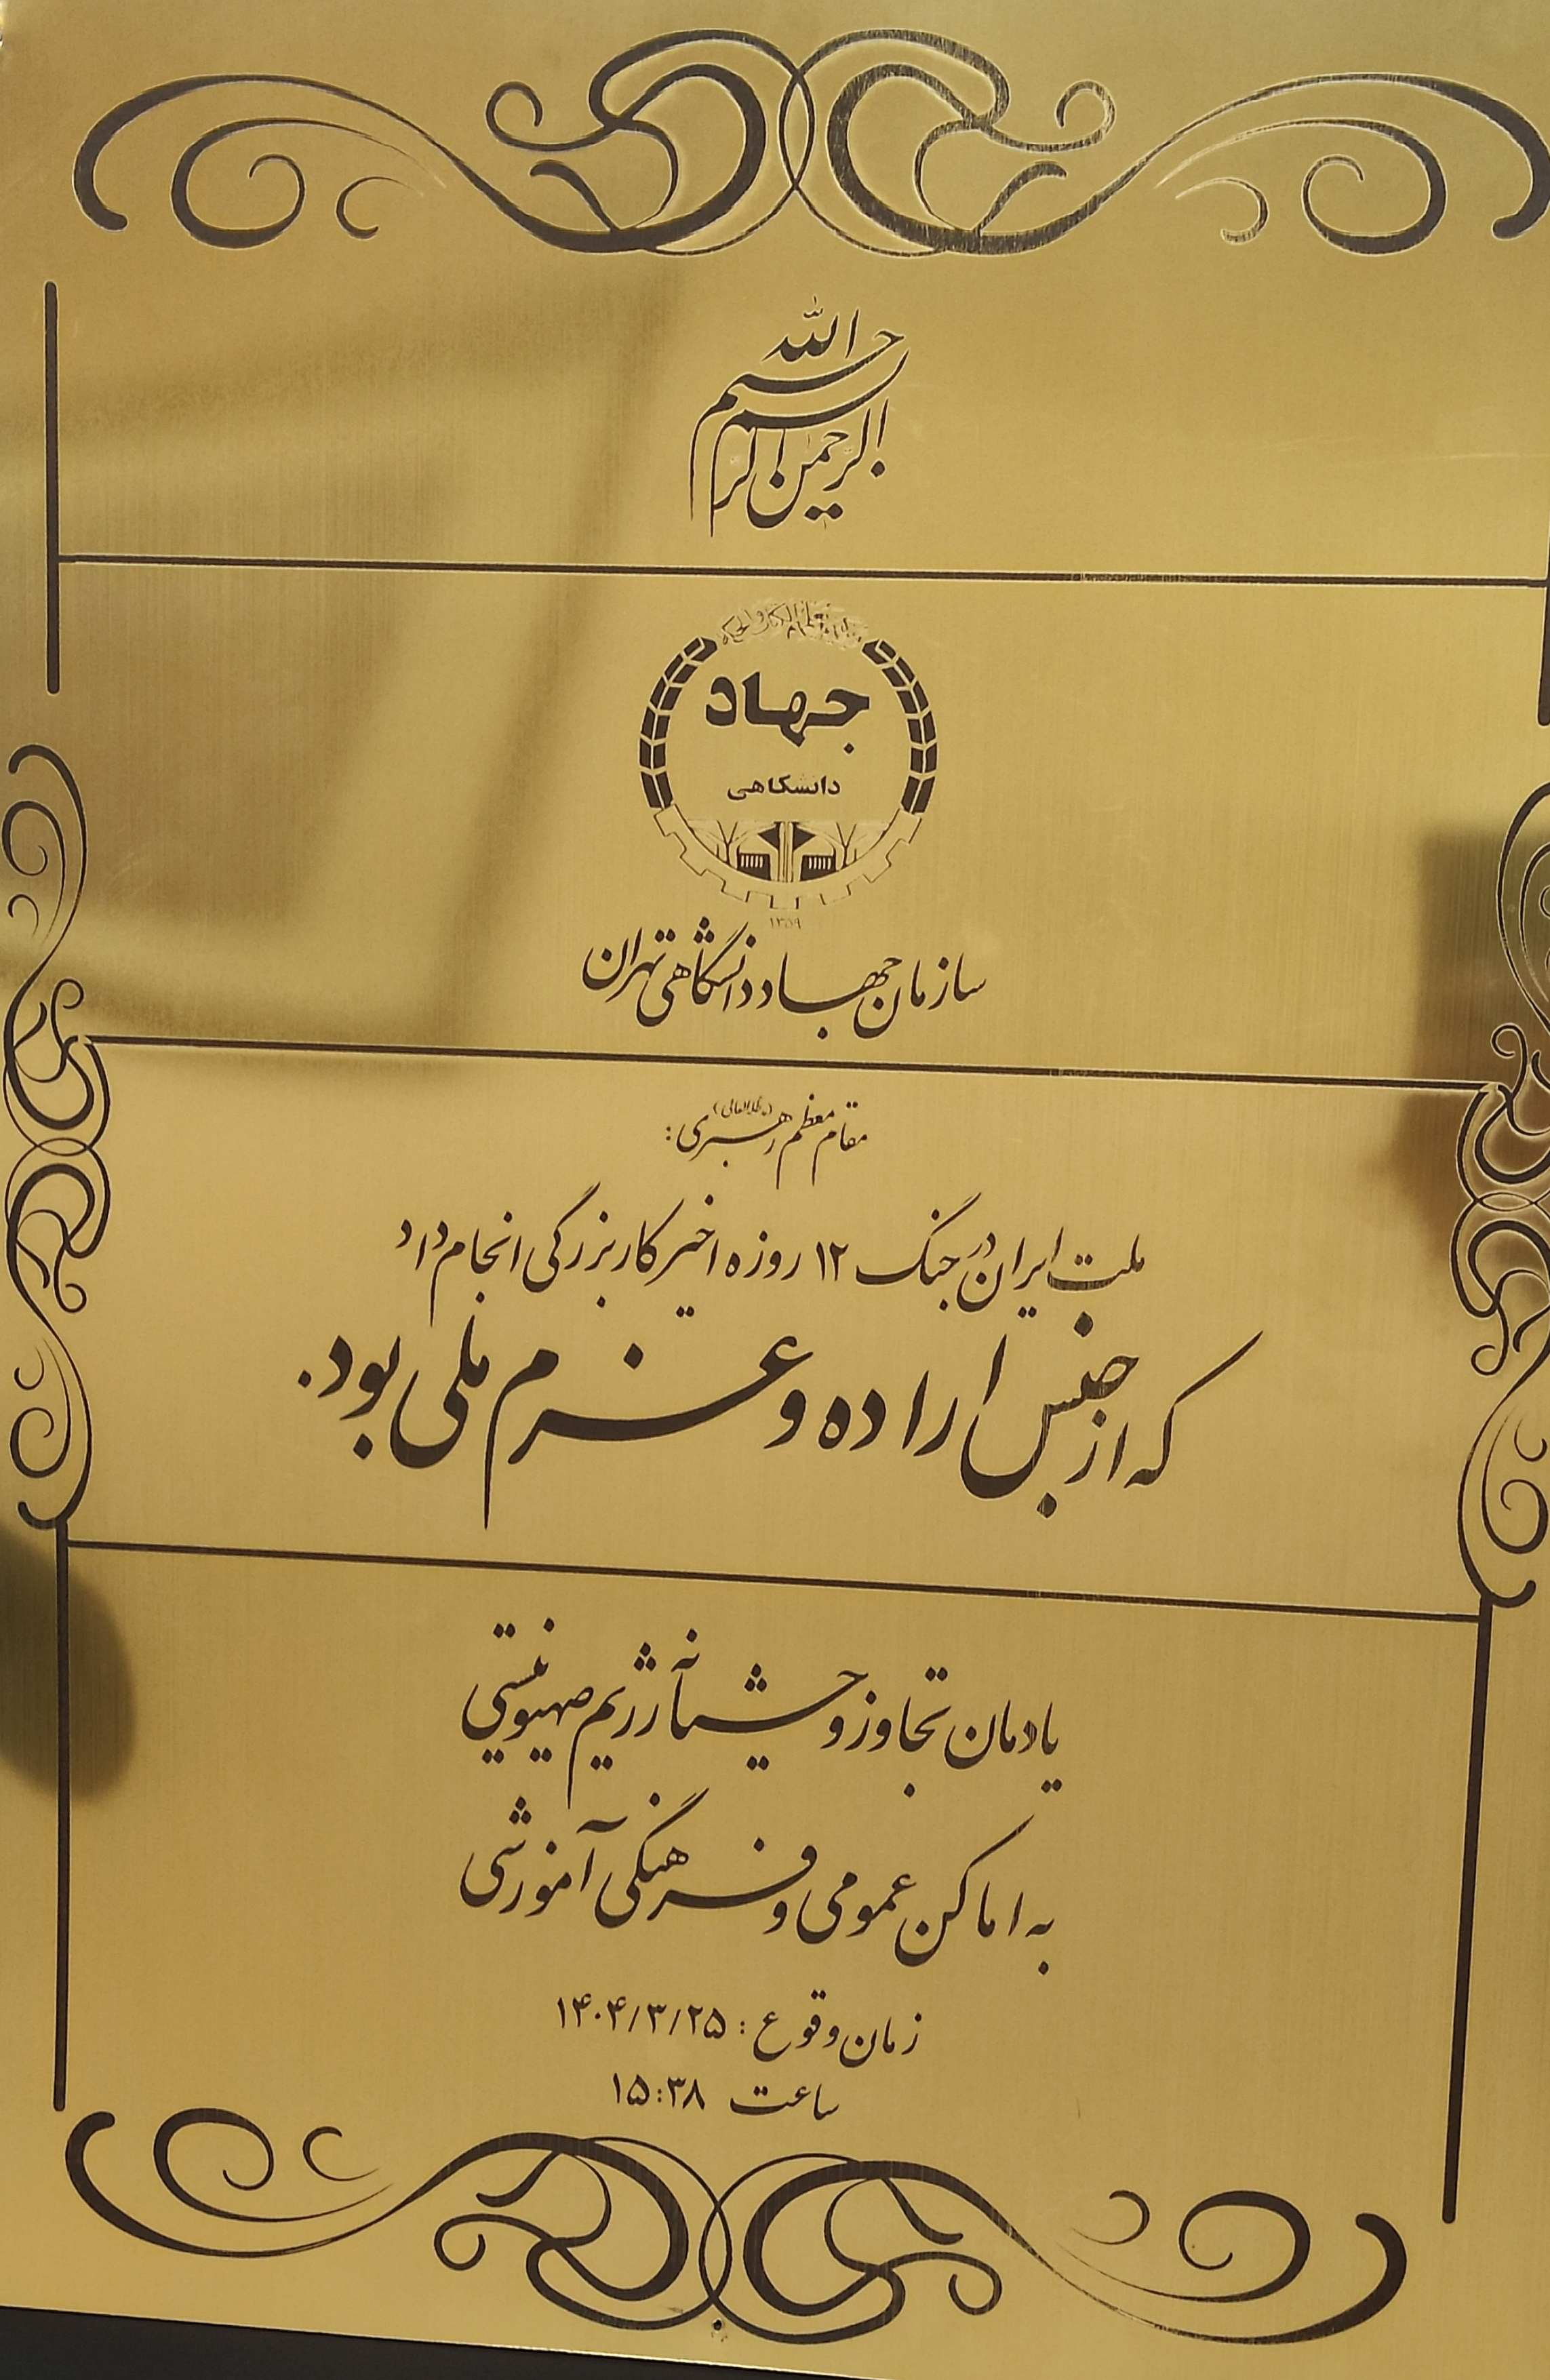 بسم الله الرحمن الرحیم
جهاد
دانشگاهی
۱۳۵۹
سازمان جهاد دانشگاهی تهران
مقام معظم رهبری (مدظله‌العالی) :
ملت ایران در جنگ ۱۲ روزه اخیر کار بزرگی انجام داد
که از جنس اراده و عزم ملی بود.
یادمان تجاوز وحشیانه رژیم صهیونیستی
به اماکن عمومی و فرهنگی آموزشی
زمان وقوع : ۱۴۰۴/۳/۲۵
ساعت ۱۵:۳۸